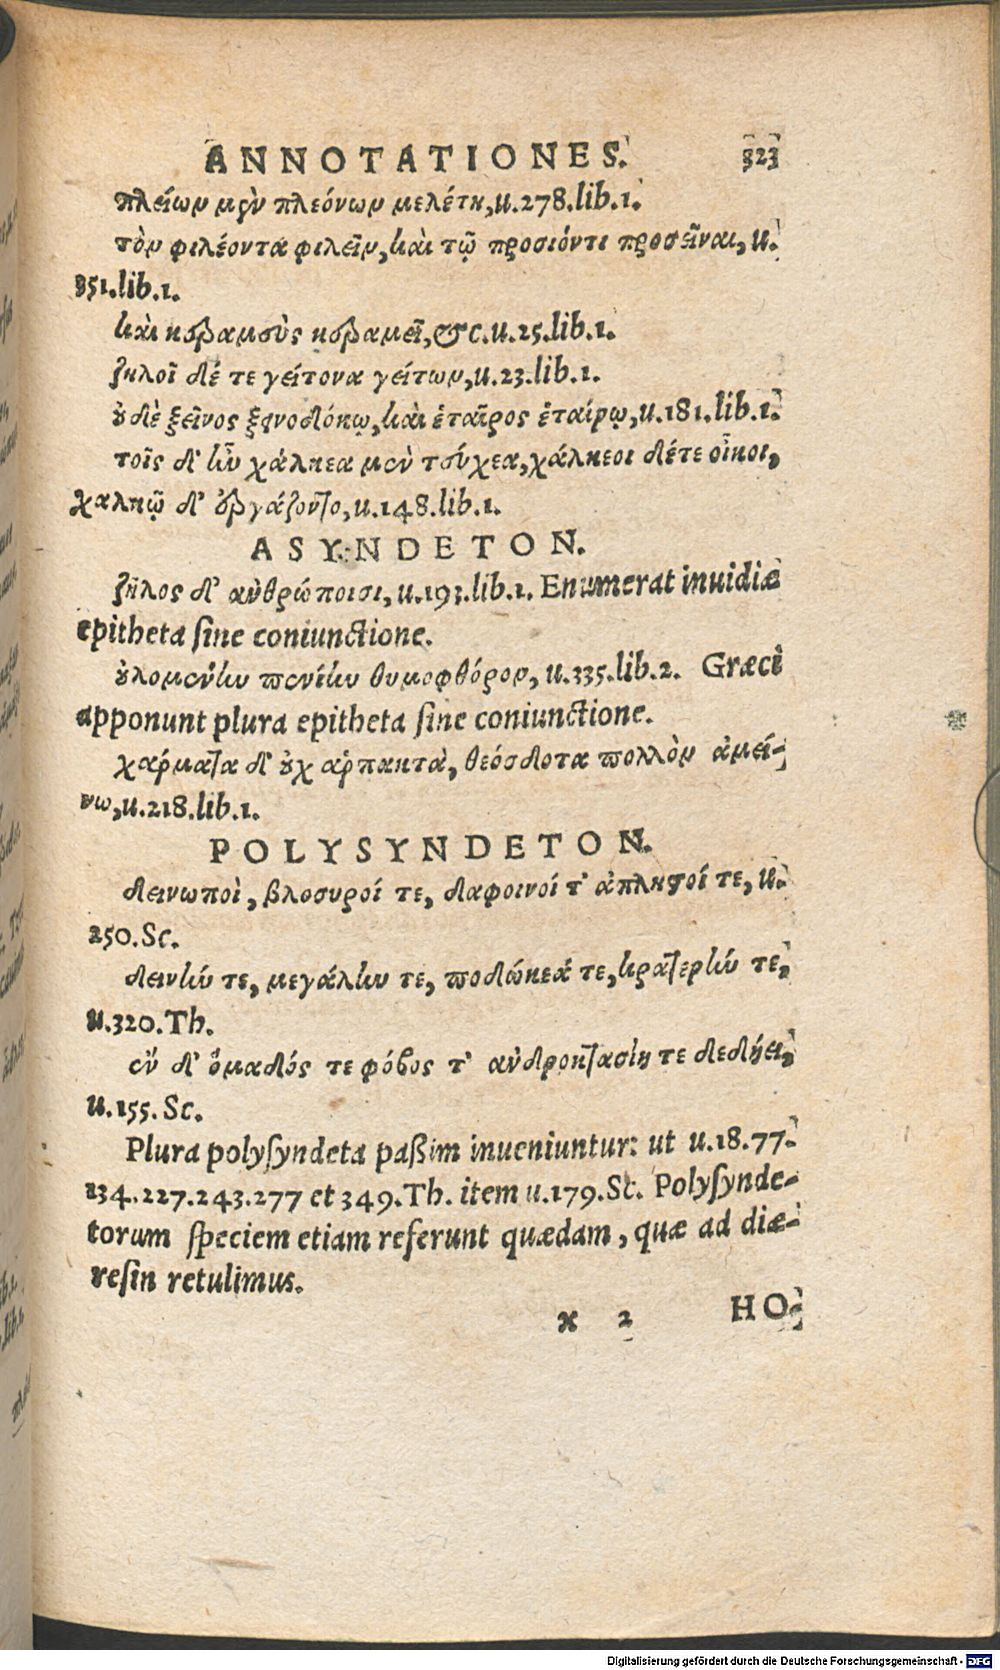 ANNOTATIONES. 323
πλείων μὲν πλεόνων μελέτη, u.278.lib.1.
τὸν φιλέοντα φιλεῖν, καὶ τῷ προσιόντι προσεῖναι, u.
351.lib.1.
καὶ κεραμεὺς κεραμεῖ, &c. u.25.lib.1.
ζηλοῖ δέ τε γείτονα γείτων, u.23.lib.1.
οὐδὲ ξεῖνος ξεινοδόκῳ, καὶ ἑταῖρος ἑταίρῳ, u.181.lib.1.
τοῖς δ' ἦν χάλκεα μὲν τεύχεα, χάλκεοι δέ τε οἶκοι,
χαλκῷ δ' ἐργάζοντο, u.148.lib.1.
ASYNDETON.
ζῆλος δ' ἀνθρώποισι, u.193.lib.1. Enumerat inuidiæ
epitheta sine coniunctione.
οὐλομένην πενίην θυμοφθόρον, u.335.lib.2. Græci
apponunt plura epitheta sine coniunctione.
χρήματα δ' οὐχ ἁρπακτὰ, θεόσδοτα πολλὸν ἀμεί-
νω, u.218.lib.1.
POLYSYNDETON.
δεινωποὶ, βλοσυροί τε, δαφοινοί τ' ἄπλητοί τε, u.
250. Sc.
δεινήν τε, μεγάλην τε, ποδώκεά τε, κρατερήν τε,
u.320. Th.
ἐν δ' ὅμαδός τε φόβος τ' ἀνδροκτασίη τε δεδήει,
u.155. Sc.
Plura polysyndeta paßim inueniuntur: ut u.18.77.
134.227.243.277 et 349. Th. item u.179. Sc. Polysynde-
torum speciem etiam referunt quædam, quæ ad diæ-
resin retulimus.
x 2 HO-
Digitalisierung gefördert durch die Deutsche Forschungsgemeinschaft - DFG